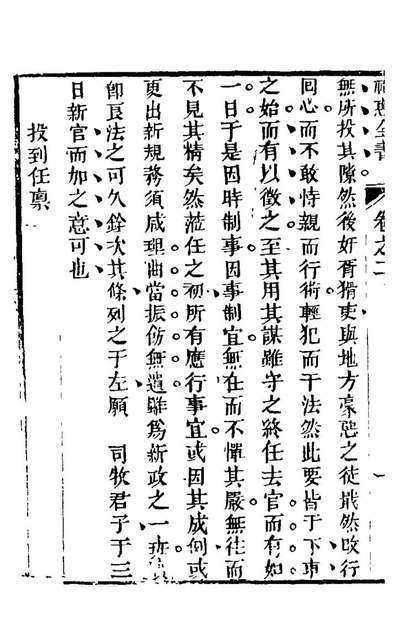 福惠全書 卷之二 一
無所投其隙然後奸胥猾吏與地方豪惡之徒戢然改行
囘心而不敢恃親而行術輕犯而干法然此要皆于下車
之始而有以徵之至其用其謀雖守之終任去官而有如
一日于是因時制事因事制宜無在而不懼其嚴無往而
不見其精矣然蒞任之初所有應行事宜或因其成例或
更出新規務須咸理曲當振飭無遺雖爲新政之一班
卽長法之可久銓次其條列之于左願 司牧君子于三
日新官而加之意可也
投到任禀